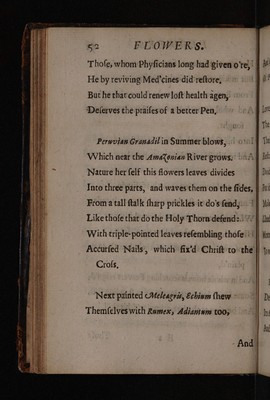 52 FLOWERS.
Those, whom Physicians long had given o're,
He by reviving Med'cines did restore,
But he that could renew lost health agen,
Deserves the praises of a better Pen.
Peruvian Granadil in Summer blows,
Which near the Amazonian River grows.
Nature her self this flowers leaves divides
Into three parts, and waves them on the sides,
From a tall stalk sharp prickles it do's send,
Like those that do the Holy Thorn defend:
With triple-pointed leaves resembling those
Accursed Nails, which fix'd Christ to the
Cross.
Next painted Meleagris, Echium shew
Themselves with Rumex, Adiantum too,
And